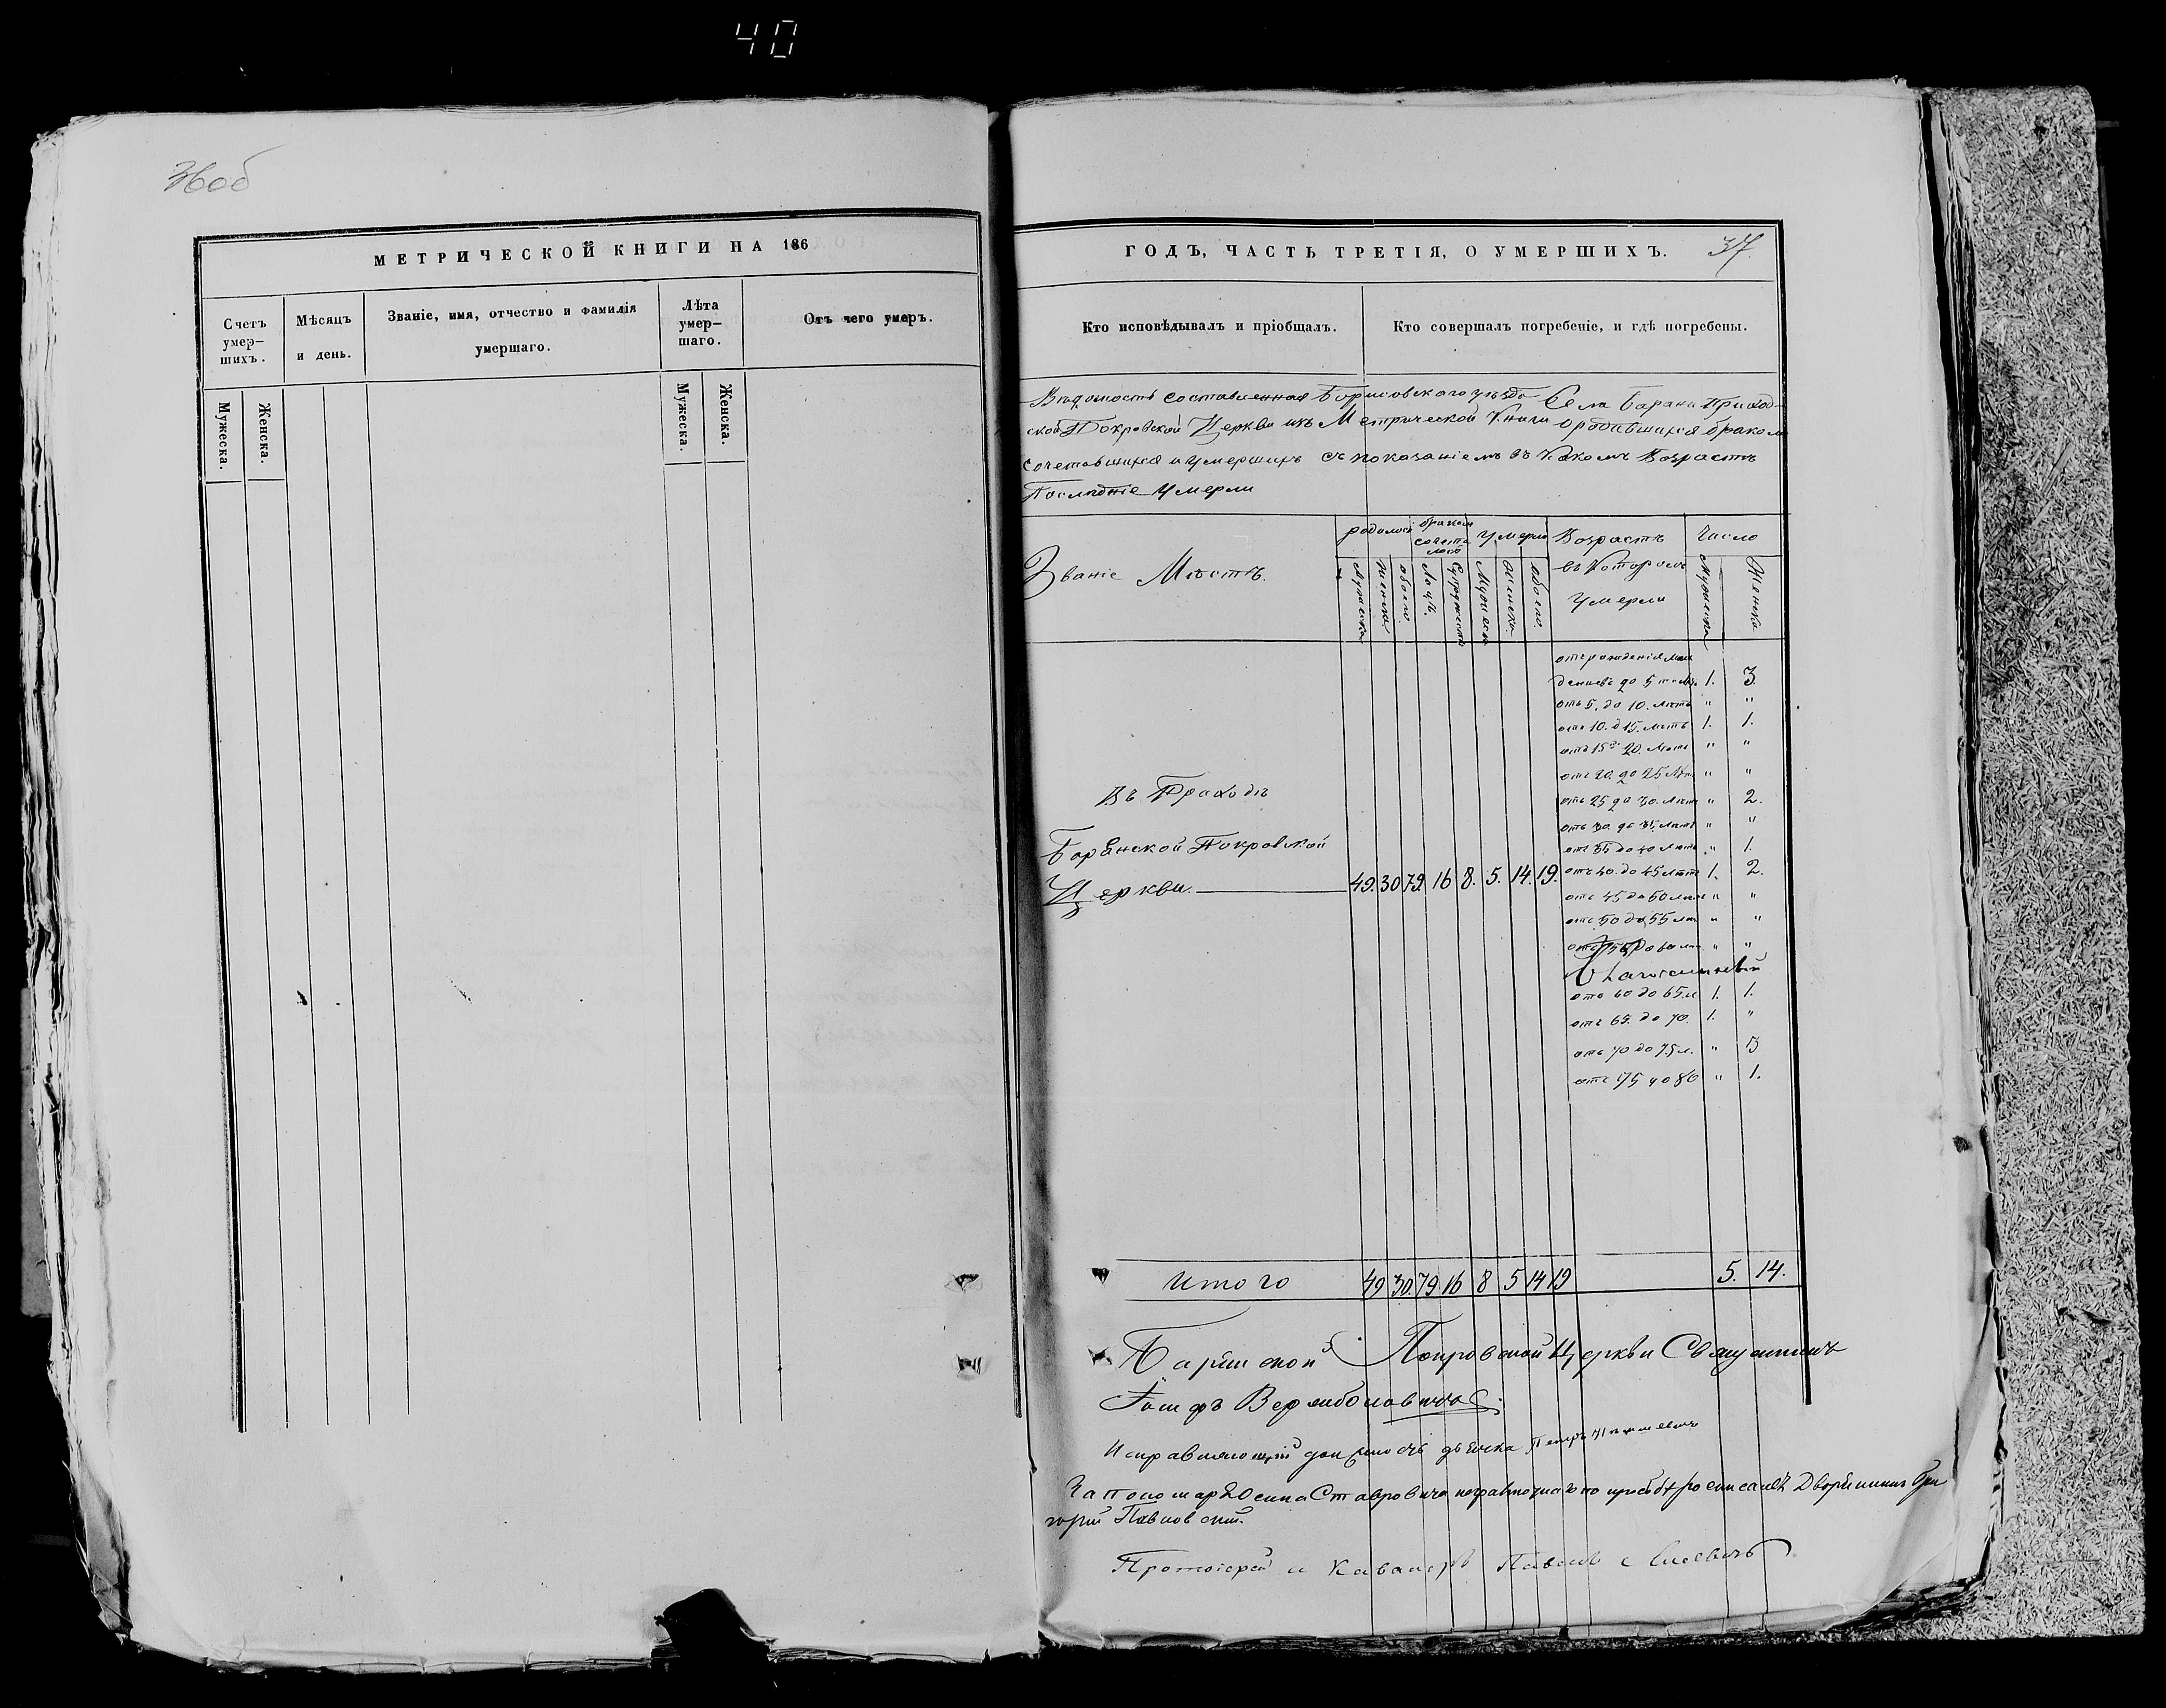 40
36об
МЕТРИЧЕСКОЙ КНИГИ НА 186
Счетъ умер-шихъ.
Мѣсяцъ и день.
Званіе, имя, отчество и фамилія умершаго.
Лѣта умер-шаго.
Отъ чего умеръ.
Мужеска.
Женска.
Мужеска.
Женска.
ГОДЪ, ЧАСТЬ ТРЕТІЯ, О УМЕРШИХЪ.
37
Кто исповѣдывалъ и пріобщалъ.
Кто совершалъ погребеніе, и гдѣ погребены.
Вѣдомость составленная Борисовскаго уѣзда Села Барани Приход-
ской Покровской Церкви изъ Метрической Книги о родившихся бракомъ
сочетавшихся и умершихъ съ показаніемъ въ какомъ Возрастѣ
Послѣдніе Умерли
Званіе Мѣстъ.
родилось
бракомъ сочеталось
Умерло
Возрастъ въ Которомъ Умерли
Число
Мужеска
Женска
обоего
Лицъ.
Супружествъ
Мужеска
Женска.
обоего.
Мужеска
Женска
отъ рожденія мла
денцевъ до 5 лѣтъ 1. 3.
отъ 5. до 10. лѣтъ " "
отъ 10. д 15. лѣтъ 1. 1.
отъ 15 д 20. лѣтъ " "
отъ 20. до 25 лѣт " "
Въ Приходѣ
отъ 25 до 30. лѣт " 2.
отъ 30. до 35. лѣтъ " "
Баранской Покровской
отъ 35 до 40 лѣтъ " 1.
Церкви. 49. 30 79. 16 8. 5. 14. 19. отъ 40. до 45 лѣтъ 1. 2.
отъ 45 до 50 лѣт " "
отъ 50 до 55 лѣт " "
отъ 55 до 60 лѣт " "
отъ 60 до 65 л 1. 1.
отъ 65. до 70. 1. "
отъ 70 до 75 л. " 3
отъ 75 до 80 " 1.
Итого 49 30. 79 16 8 5 14 19 5. 14.
Покровской Церкви Священникъ
Исправляющій должность дьячка Петръ
За пономаря Осипа Ставровича неграмотнаго по просьбѣ росписался Дворянинъ Гри
горій Павловскій.
Протоіерей и Кавалеръ Павелъ